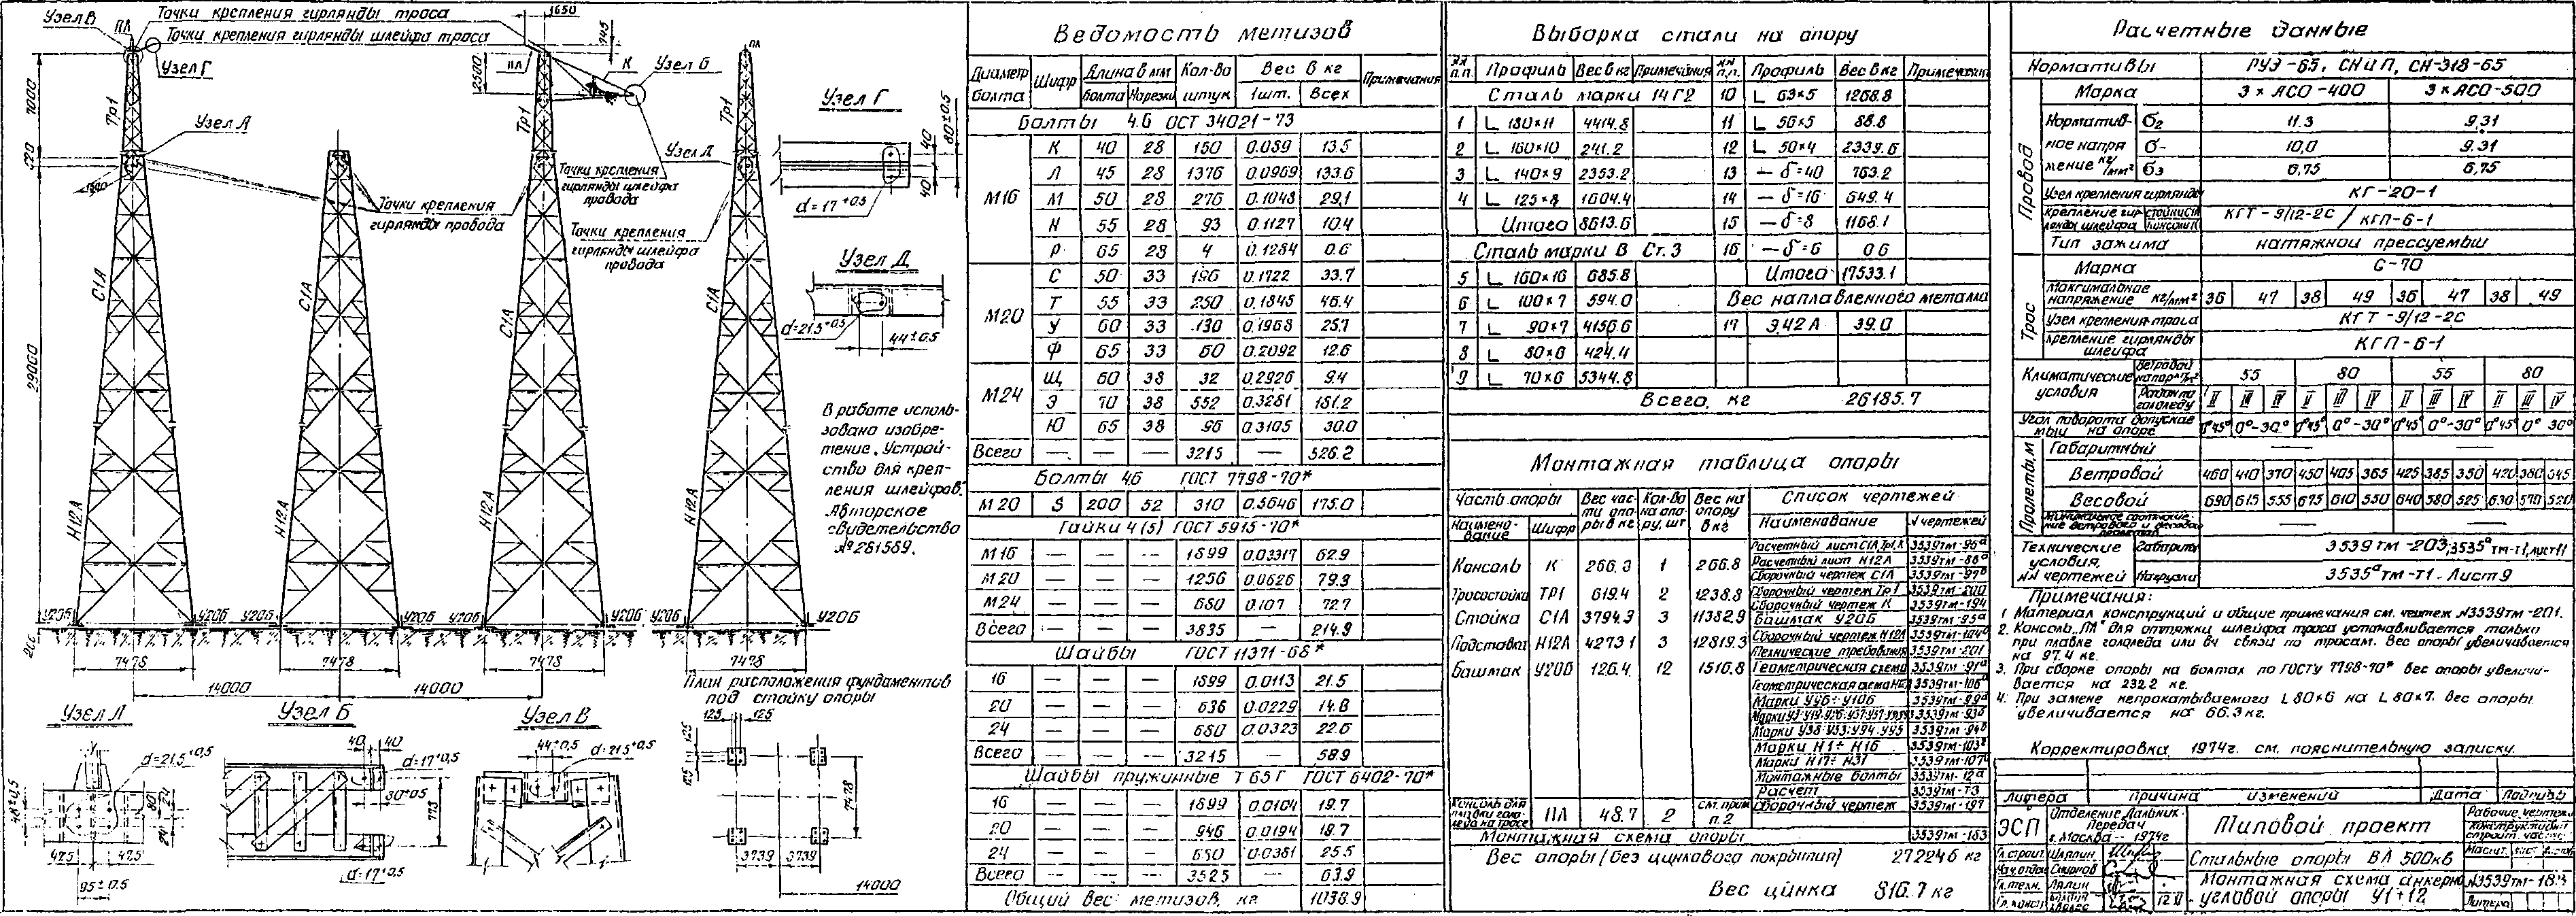 Узел В
ПЛ
Точки крепления гирлянды троса
Точки крепления гирлянды шлейфа троса
Узел Г
1650
745
2500
ПЛ
К
Узел Б
ПЛ
7000
Тр1
Тр1
Тр1
Узел А
Узел Д
29000
С1А
С1А
С1А
С1А
Точки крепления
гирлянды провода
Точки крепления
гирлянды шлейфа
провода
Точки крепления
гирлянды шлейфа
провода
Н12А
Н12А
Н12А
Н12А
У20Б
У20Б
У20Б
У20Б
У20Б
У20Б
У20Б
У20Б
7478
7478
7478
7478
14000
14000
Узел Г
40
80±0.5
40
d=17+0.5
Узел Д
d=21.5+0.5
44±0.5
В работе исполь-
зовано изобре-
тение. Устрой-
ство для креп-
ления шлейфов.
Авторское
свидетельство
№281569.
Узел А
d=21.5+0.5
47.5 47.5
95±0.5
Узел Б
40 40
d=17+0.5
80±0.5
773
d=17+0.5
Узел В
44±0.5
d=21.5+0.5
План расположения фундаментов
под стойку опоры
125 125
125
125
7478
3739 3739
14000
Ведомость метизов
Диаметр болта Шифр Длина в мм болта Нарезки Кол-во штук Вес в кг 1шт. Всех Примечания
Болты 4.6 ОСТ 34021-73
М16 К 40 28 150 0.089 13.5
Л 45 28 1376 0.0969 133.6
М 50 28 276 0.1048 29.1
Н 55 28 93 0.1127 10.4
Р 65 28 4 0.1284 0.6
М20 С 50 33 196 0.1722 33.7
Т 55 33 250 0.1845 46.4
У 60 33 130 0.1968 25.7
Ф 65 33 60 0.2092 12.6
М24 Щ 60 38 32 0.2926 9.4
Э 70 38 552 0.3281 181.2
Ю 65 38 96 0.3105 30.0
Всего — — — 3215 — 526.2
Болты 4.6 ГОСТ 7798-70*
М20 S 200 52 310 0.5646 175.0
Гайки 4(5) ГОСТ 5915-70*
М16 — — — 1899 0.03317 62.9
М20 — — — 1256 0.0626 79.3
М24 — — — 680 0.107 72.7
Всего — — — 3835 — 214.9
Шайбы ГОСТ 11371-68*
16 — — — 1899 0.0113 21.5
20 — — — 636 0.0229 14.8
24 — — — 680 0.0323 22.6
Всего — — — 3215 — 58.9
Шайбы пружинные Т 65Г ГОСТ 6402-70*
16 — — — 1899 0.0104 19.7
20 — — — 946 0.0194 18.7
24 — — — 680 0.0381 25.5
Всего — — — 3525 — 63.9
Общий вес метизов, кг 1038.9
Выборка стали на опору
№№ п.п. Профиль Вес в кг Примечания №№ п.п. Профиль Вес в кг Примечания
Сталь марки 14Г2 10 L 63×5 1268.8
1 L 180×11 4414.8 11 L 56×5 88.8
2 L 160×10 241.2 12 L 50×4 2339.6
3 L 140×9 2353.2 13 — δ=40 763.2
4 L 125×8 1604.4 14 — δ=16 649.4
Итого 8613.6 15 — δ=8 1168.1
Сталь марки В Ст.3 16 — δ=6 0.6
5 L 160×16 685.8 Итого 17533.1
6 L 100×7 594.0 Вес наплавленного металла
7 L 90×7 4156.6 17 Э42А 39.0
8 L 80×6 424.4
9 L 70×6 5344.8
Всего, кг 26185.7
Монтажная таблица опоры
Часть опоры Вес час- ти опо- ры в кг Кол-во на опо- ру, шт Вес на опору в кг Список чертежей
Наимено- вание Шифр Наименование № чертежей
Консоль К 266.3 1 266.8
Тросостойка ТР1 619.4 2 1238.8
Стойка С1А 3794.3 3 11382.9
Подставка Н12А 4273.1 3 12819.3
Башмак У20Б 126.4 12 1516.8
Расчетный лист С1А,Тр1,К 3539тм-96а
Расчетный лист Н12А 3539тм-88а
Сборочный чертеж С1А 3539тм-97в
Сборочный чертеж Тр1 3539тм-200
Сборочный чертеж К 3539тм-194
Башмак У20Б 3539тм-95а
Сборочный чертеж Н12А 3539тм-104в
Технические требования 3539тм-201
Геометрическая схема 3539тм-91а
Марки У4Б÷У10Б 3539тм-99а
Марки Н1÷Н16 3539тм-103г
Марки Н17÷Н31 3539тм-107в
Монтажные болты 3539тм-12а
Расчет 3539тм-Т3
Консоль для плавки голо- леда на тросе ПЛ 48.7 2 см. прим п.2 Сборочный чертеж 3539тм-197
Монтажная схема опоры 3539тм-183
Вес опоры (без цинкового покрытия) 27224.6 кг
Вес цинка 816.7 кг
Расчетные данные
Нормативы ПУЭ-65, СНиП, СН-318-65
Провод Марка 3×АСО-400 3×АСО-500
Норматив- ное напря жение кг/мм² σг 11.3 9.31
σ- 10.0 9.31
σэ 6.75 6.75
Узел крепления гирлянды КГ-20-1
Крепление гир- лянды шлейфа стойки С1А консоли К КГТ-9/12-2С / КГП-6-1
Тип зажима натяжной прессуемый
Трос Марка С-70
Максимальное напряжение кг/мм² 36 47 38 49 36 47 38 49
Узел крепления троса КГТ-9/12-2С
Крепление гирлянды шлейфа КГП-6-1
Климатические условия Ветровой напор 55 80 55 80
Район по гололеду II III IV II III IV II III IV II III IV
Угол поворота допускае мый на опоре 0°45° 0°-30° 0°45° 0°-30° 0°45° 0°-30° 0°45° 0° 30°
Пролеты, м Габаритный — —
Ветровой 460 410 370 450 405 365 425 385 350 420 380 345
Весовой 690 615 555 675 610 550 640 580 525 630 570 520
Технические условия, №№ чертежей Габариты 3539тм-203, 3535а тм-т1, лист 11
Нагрузки 3535а тм-т1. Лист 9
Примечания:
1 Материал конструкций и общие примечания см. чертеж №3539тм-201.
2. Консоль „ПЛ" для оттяжки шлейфа троса устанавливается только
при плавке гололеда или вч связи по тросам. Вес опоры увеличивается
на 97.4 кг.
3. При сборке опоры на болтах по ГОСТу 7798-70* вес опоры увеличи-
вается на 232.2 кг.
4. При замене непрокатываемого L80×6 на L80×7. Вес опоры
увеличивается на 66.3 кг.
Корректировка 1974г. см. пояснительную записку.
Литера причина изменений Дата Подпись
ЭСП Отделение Дальних Передач г. Москва 1974г
Типовой проект
Рабочие чертежи
Стальные опоры ВЛ 500кв
Монтажная схема анкерно
угловой опоры У1+12
№3539тм-183
Литера